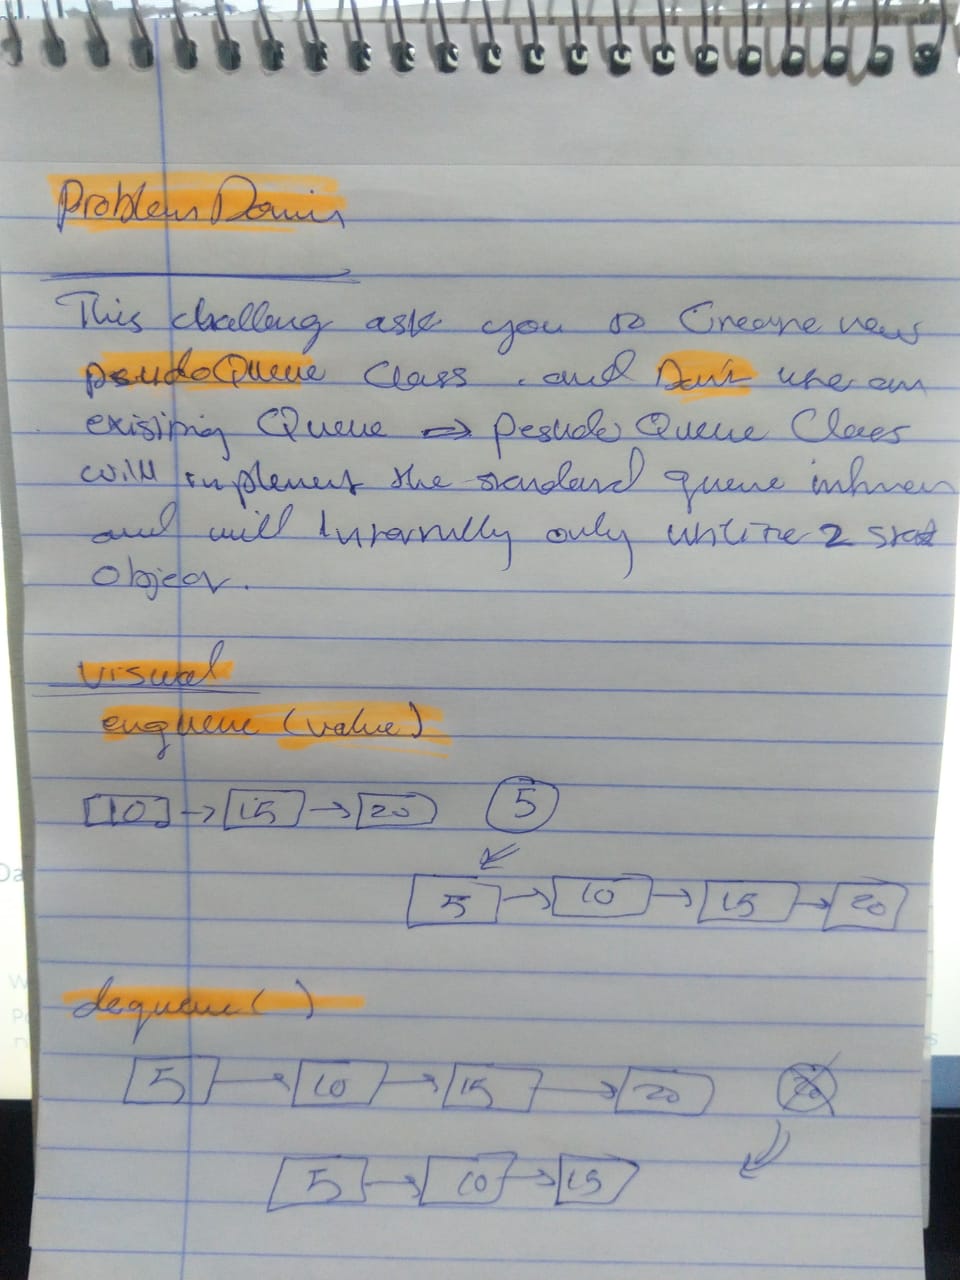 Problem Domin
This challeng ask you to Create new
pseudoQueue Class . and Don't use an
existing Queue → pesudo Queue Class
will implement the standard queue
and will Internally only utilize 2 stack
Object.
visual
enqueue (value)
[10] → 15 → 20 5
5 → 10 → 15 → 20
dequeue( )
5 → 10 → 15 → 20 20
5 → 10 → 15